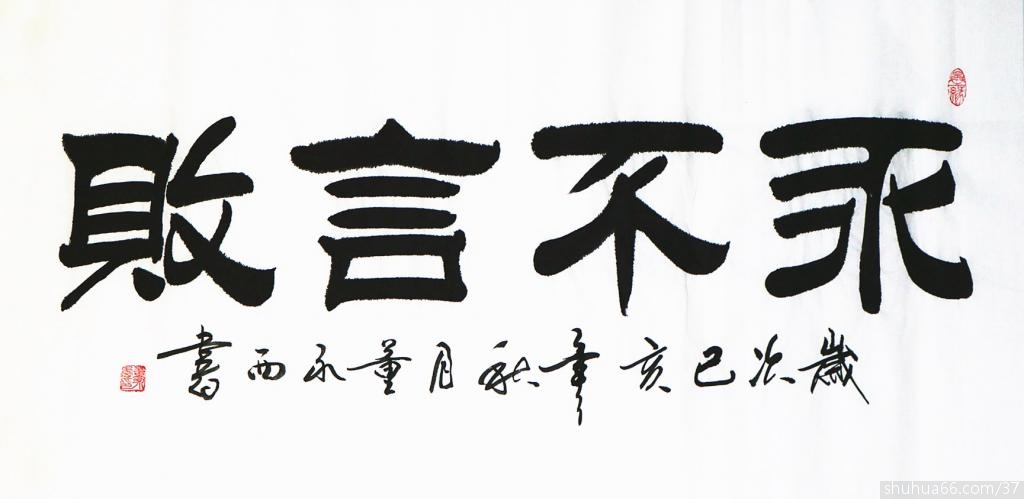 永不言敗
歲次己亥年秋月董永西書
shuhua66.com/37